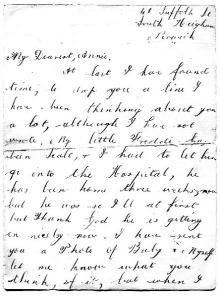 41 Suffolk St
South Heigham
Norwich
My Dearest, Annie,
At last I have found
time, to drop you a line I
have been thinking about you
a lot, although I have not
wrote, My little Freddie
been Scalt, & I had to let him
go into the Hospital, he
has been home three weeks, now
but he was so Ill at first
but Thank God he is getting
on nicely now. I have sent
you a Photo of Baby & Myself
let me know what you
think, of it, but when I